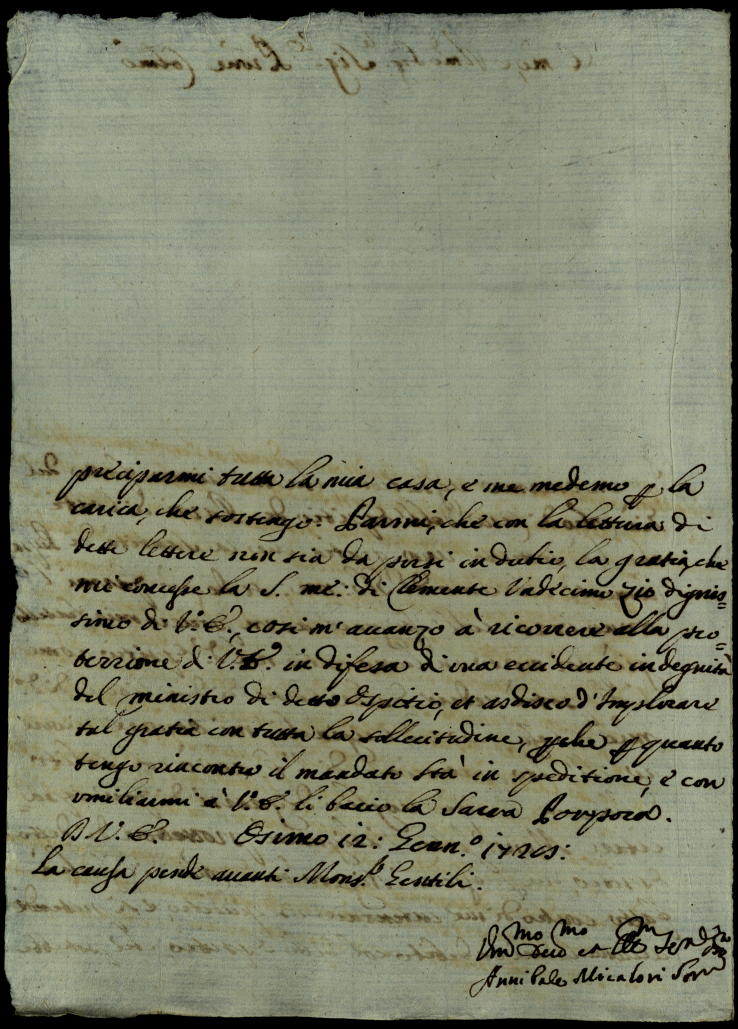 preciparmi tutta la mia casa, e me medemo p la
carica, che sostengo. Parmi, che con la lettura di
dette lettere non sia da porsi in dubio, la gratia, che
mi concesse la S. me: di Clemente Undecimo zio dignis=
simo di V. E., così m' auanzo à ricorrere alla pro=
tezzione di V. E. in difesa di una euidente indegnità
del ministro di detto Ospitio, et ardisco d' Implorare
tal gratia con tutta la sollecitudine, pche p quanto
tengo rincontro il mandato stà in speditione, e con
umiliarmi à V. E. li bacio la Sacra Porpora.
D V. E. Osimo 12: Genn.o
La causa pende auanti Mons.r Gentili.
Um.mo Deu.mo et
Annibale Micalori